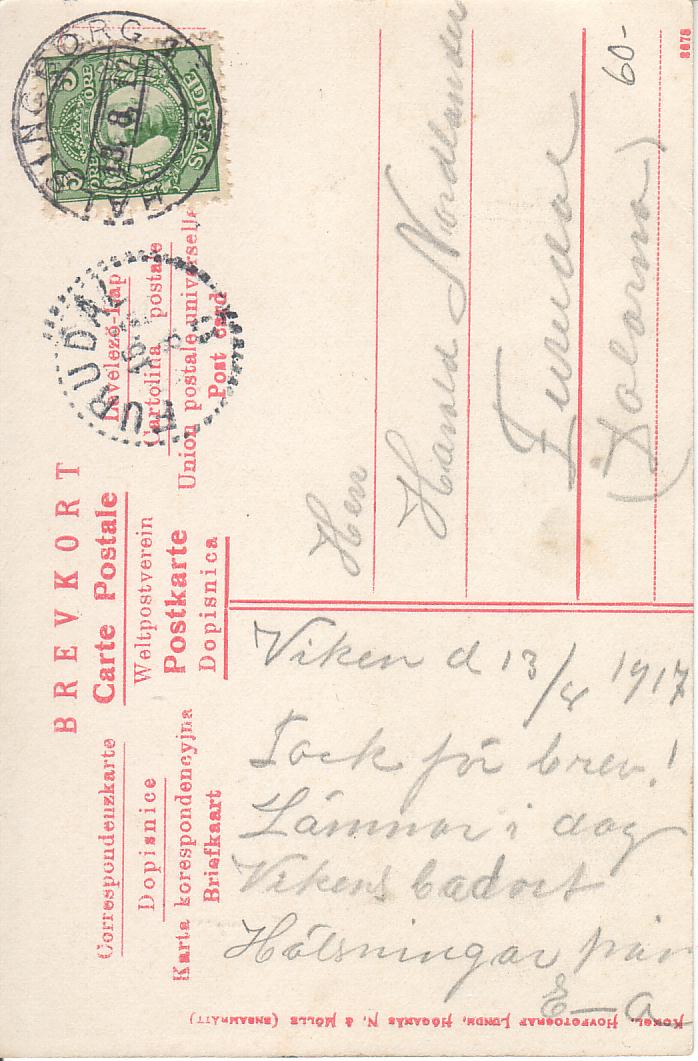 BREVKORT
Carte Postale
Weltpostverein
Postkarte
Dopisnica
Correspondenzkarte
Dopisnice
Karta korespondencyjna
Briefkaart
Levelező-Lap
Cartolina postale
Union postale universelle
Post card
SVERIGE
5 ÖRE
HÄLSINGBORG
13. 8. 17
FURUDAL
8678
60-
Herr
Harald Nordlander
Furudal
(Dalarna)
Viken d 13/8 1917
Tack för brev!
Lämnar i dag
Vikens badort
Hälsningar från
E-a
Kongl. Hovfotograf Lundh, Höganäs N. & Mölle (ensamrätt)